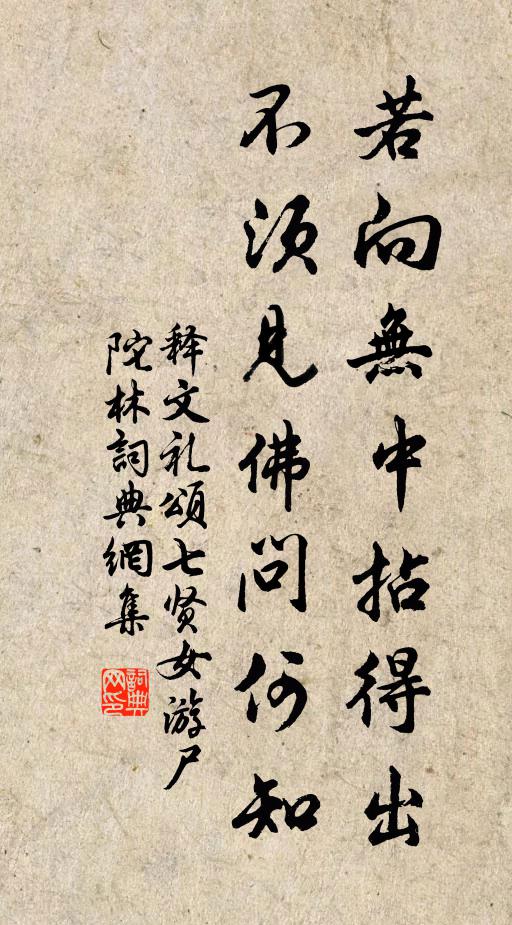 若向無中拈得出
不須見佛問何知
释文礼頌七贤女游尸
陀林詞典網集
詞典网印